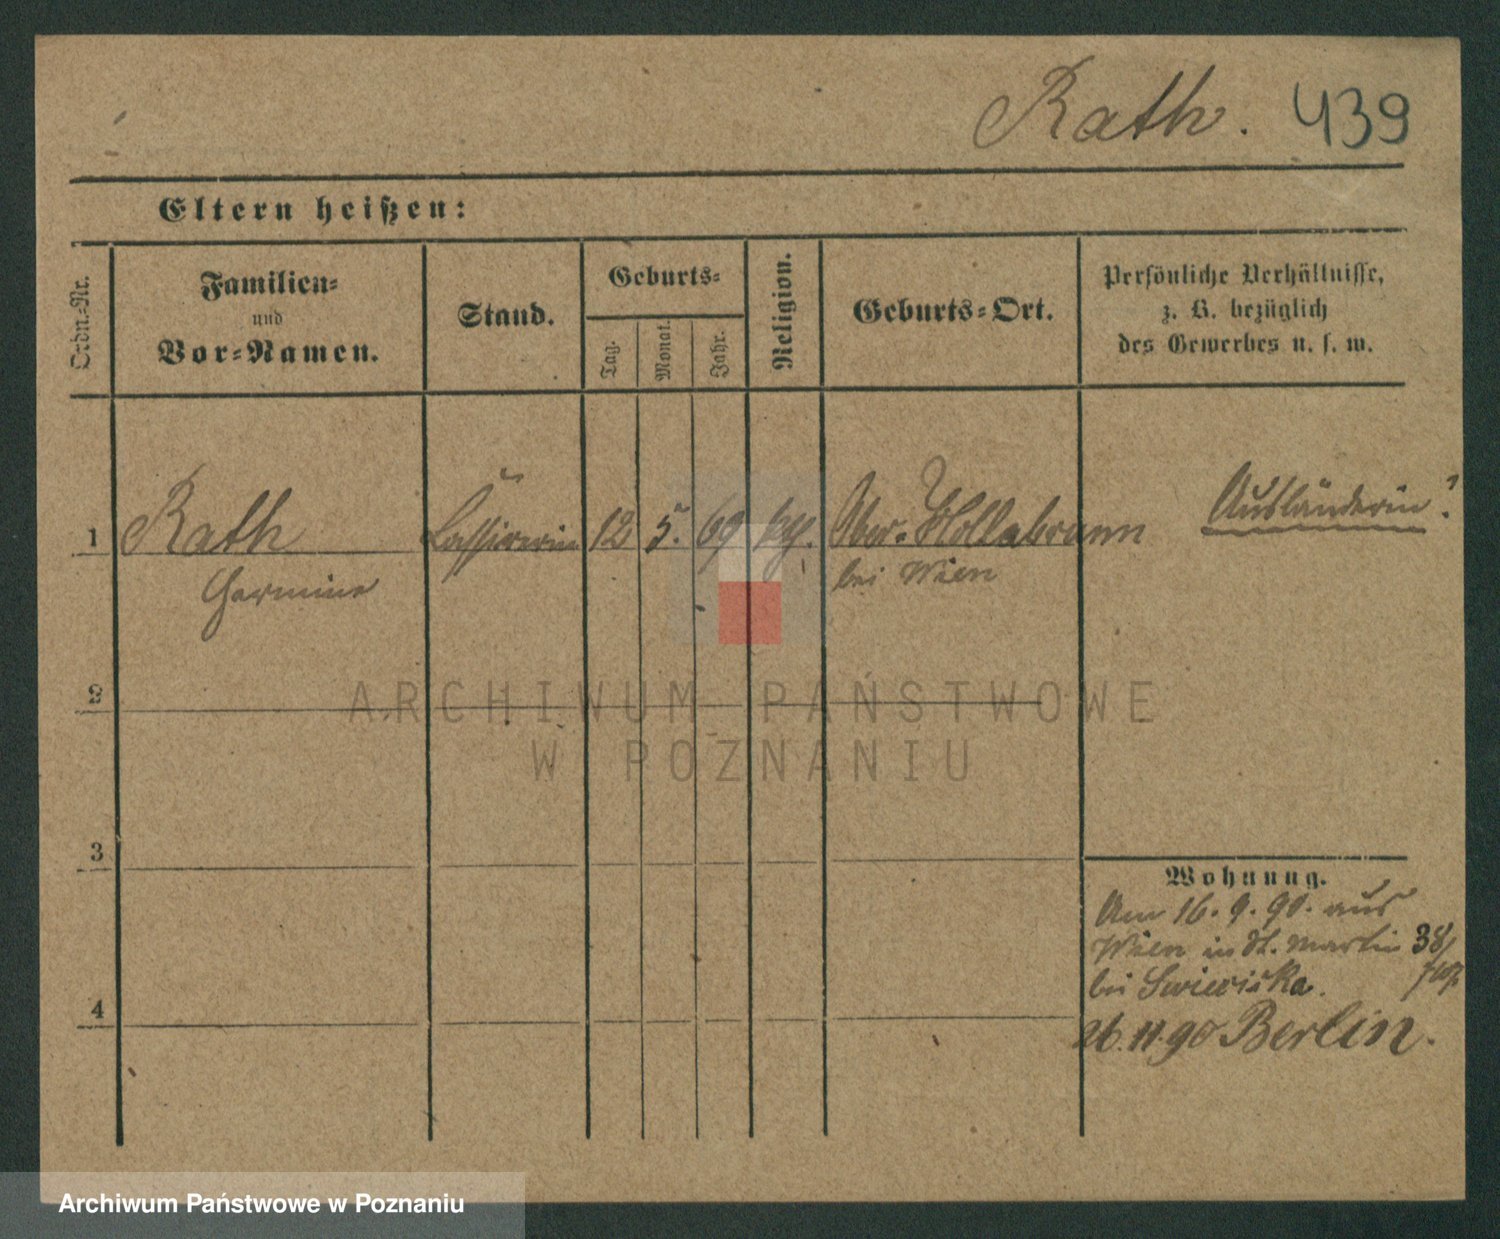 Rath. 439
Eltern heißen:
Ordn.-Nr.
Familien-
und
Vor-Namen.
Stand.
Geburts-
Tag.
Monat.
Jahr.
Religion.
Geburts-Ort.
Persönliche Verhältnisse,
z. B. bezüglich
des Gewerbes u. s. w.
1 Rath Kassirerin 12 5. 69 Ober-Hollabrunn Ausländerin?
Hermine bei Wien
2
ARCHIWUM PAŃSTWOWE
W POZNANIU
3
Wohnung.
Am 16. 9. 90. aus
Wien in St. Martin 38
bei
4
26. 11. 90 Berlin.
Archiwum Państwowe w Poznaniu